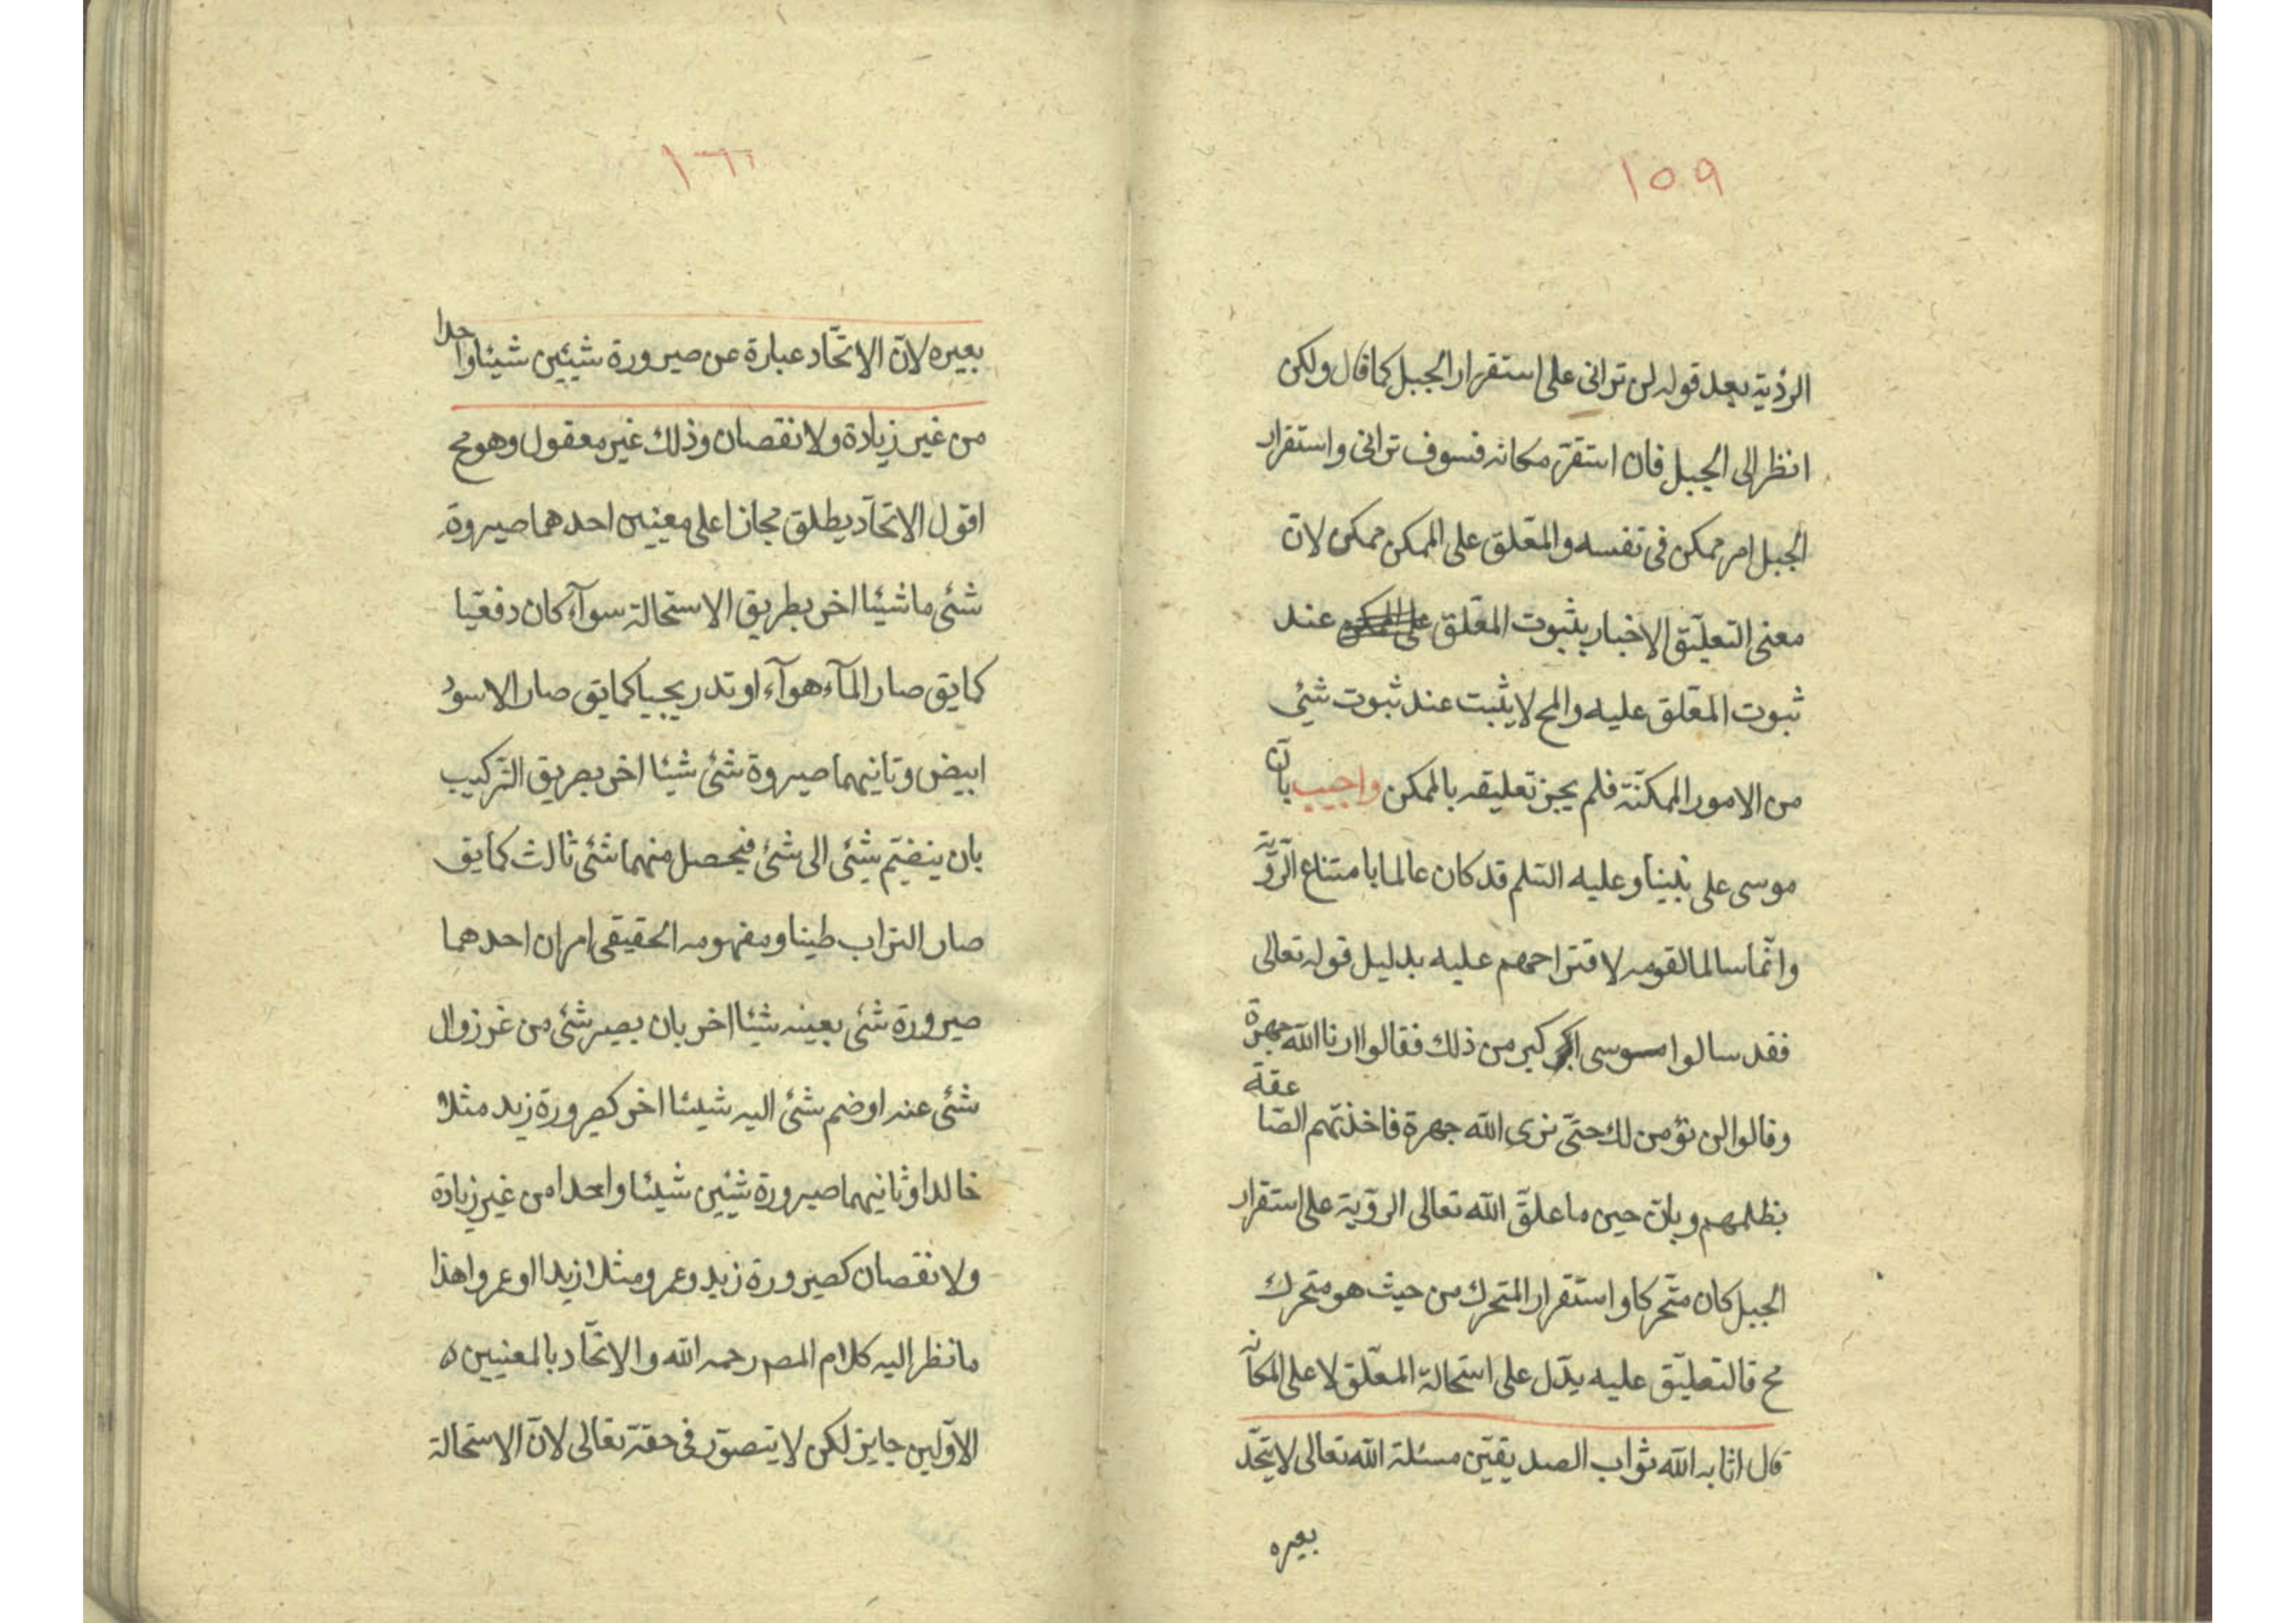 ١٥٩
الرؤية بعد قوله لن ترانى على استقرار الجبل كما قال ولكن
انظر الى الجبل فان استقرّ مكانه فسوف ترانى واستقرار
الجبل امر ممكن فى نفسه والمعّلق على الممكن ممكن لانّ
معنى التعليّق الاخبار بثبوت المعّلق على الممكن عند
ثبوت المعّلق عليه والمح لا يثبت عند ثبوت شيئ
من الامور الممكنّة فلم يجز تعليقه بالممكن واجيب بانّ
موسى على نبينا وعليه السّلم قد كان عالما بامتناع الرّؤية
وانّما سالها لقومه لاقتراحهم عليه بدليل قوله تعالى
فقد سالوا موسى اكبر من ذلك فقالوا ارنا الله جهرة
وقالوا لن نؤمن لك حتىّ نرى الله جهرة فاخذتهم الصّاعقة
بظلمهم وبانّ حين ما علقّ الله تعالى الرؤية على استقرار
الجبل كان متّحركا واستقرار المتحرك من حيث هو متحرك
مح فالتعليّق عليه يدّل على استحالة المعّلق لا على امكانه
قال اثابه الله ثواب الصديقيّن مسئلة الله تعالى لا يتّحد
بغيره
١٦٠
بغيره لانّ الاتحّاد عبارة عن صيرورة شيئين شيئا واحدا
من غير زيادة ولا نقصان وذلك غير معقول وهو مح
اقول الاتحاّد يطلق مجازا على معنيين احدهما صيروة
شئى ما شيئا اخر بطريق الاستحالة سوآء كان دفعيّا
كما يق صار المآء هوآء او تدريجيا كما يق صار الاسود
ابيض وثانيهما صيروة شئى شيئا اخر بطريق التركيب
بان ينضمّ شئى الى شئى فيحصل منهما شئى ثالث كما يق
صار التراب طينا ومفهومه الحقيقى امران احدهما
صيرورة شئى بعينه شيئا اخر بان يصير شئى من غير زوال
شئى عنه او ضم شئى اليه شيئا اخر كصيرورة زيد مثلا
خالدا وثانيهما صيرورة شيئين شيئا واحدا من غير زيادة
ولا نقصان كصيرورة زيد وعمرو مثلا زيدا او عمروا هذا
ما نظر اليه كلام المصـ رحمه الله والاتحّاد بالمعنيين
الاوّلين جايز لكن لا يتصوّر فى حقّه تعالى لانّ الاستحالة